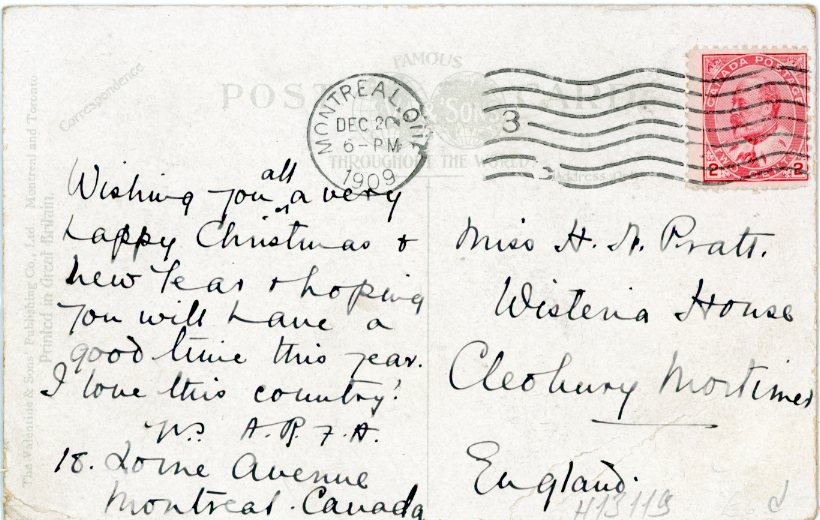 Correspondence.
FAMOUS
POST CARD
& SONS
THROUGHOUT THE WORLD
Address Only
The Valentine & Sons' Publishing Co., Ltd. Montreal and Toronto
Printed in Great Britain.
MONTREAL. QUE
DEC 20
6-PM
1909
3
CANADA POSTAGE
2 2
all
Wishing you ^ a very
happy Christmas &
new Year & hoping
you will have a
good time this year.
I love this country!
Yrs A.R.F.A.
18. Lorne Avenue
Montreal. Canada
Miss H. A. Pratt.
Wisteria House
Cleobury Mortimer
England.
H13119